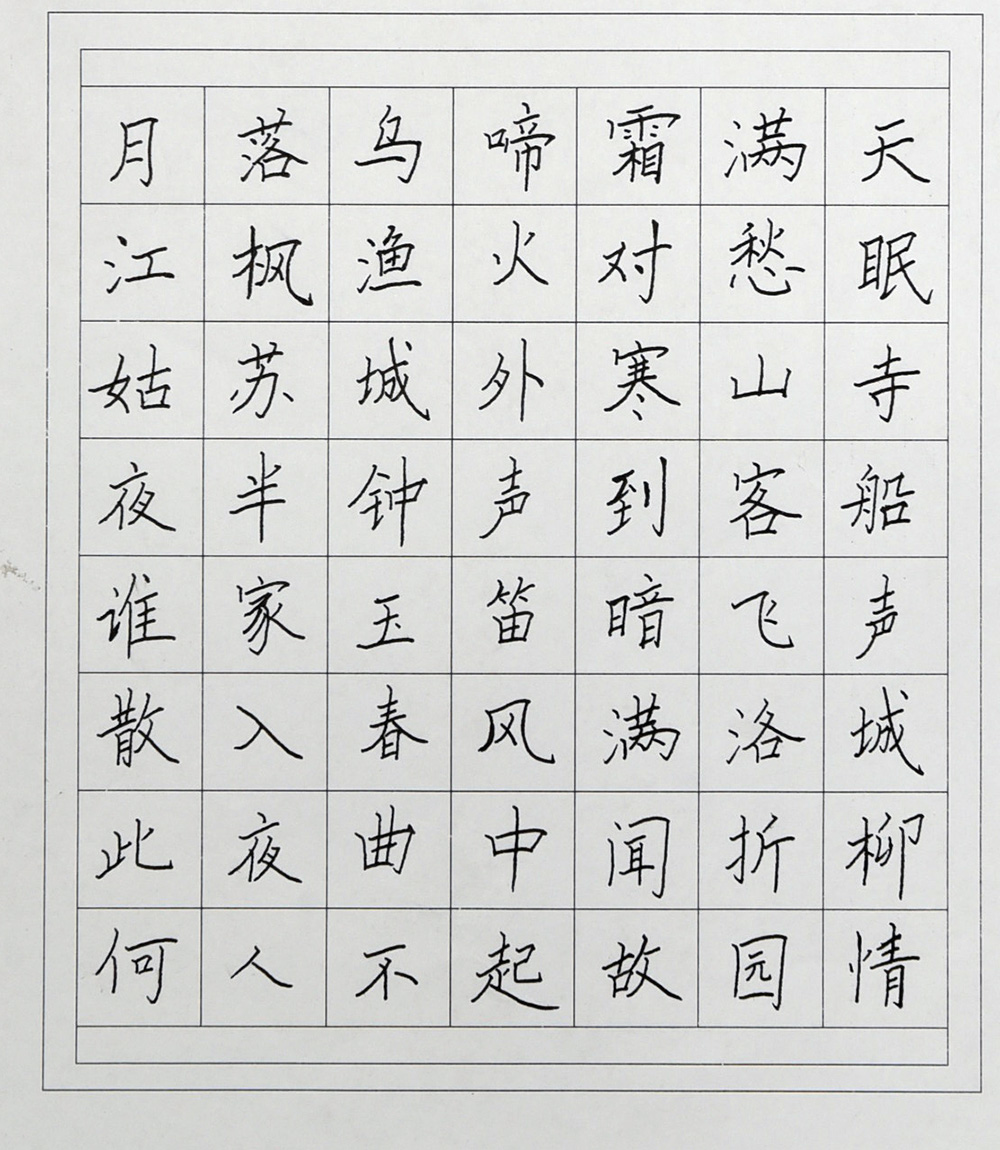 月落乌啼霜满天
江枫渔火对愁眠
姑苏城外寒山寺
夜半钟声到客船
谁家玉笛暗飞声
散入春风满洛城
此夜曲中闻折柳
何人不起故园情